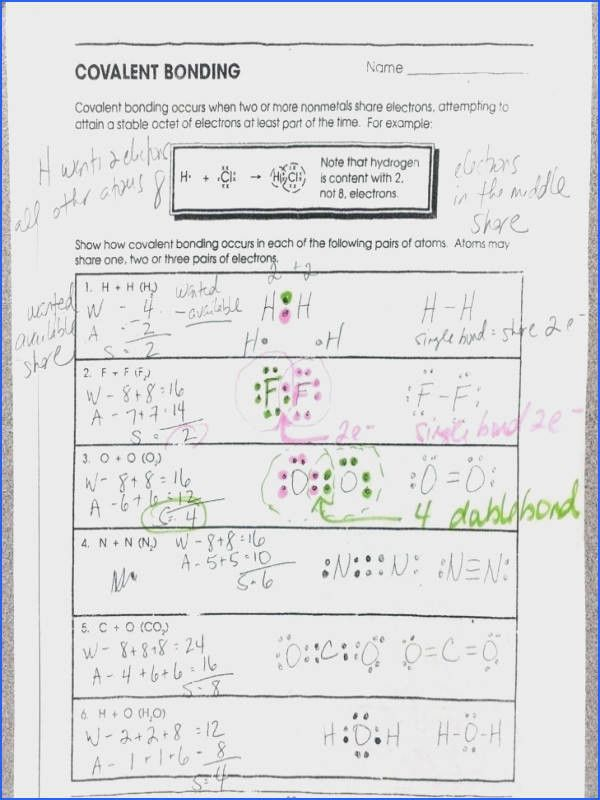 COVALENT BONDING
Name
Covalent bonding occurs when two or more nonmetals share electrons, attempting to
attain a stable octet of electrons at least part of the time. For example:
H wants 2 electrons
all other atoms 8
H· + Cl → H Cl
Note that hydrogen
is content with 2,
not 8, electrons.
electrons
in the middle
share
Show how covalent bonding occurs in each of the following pairs of atoms. Atoms may
share one, two or three pairs of electrons.
wanted
available
share
1. H + H (H₂)
W - 4
A - 2
S = 2
wanted
- available
2 + 2
H : H
H· ·H
H - H
single bond = share 2 e-
2. F + F (F₂)
W - 8+8=16
A - 7+7=14
S = 2
F F
2e-
F - F
single bond 2e-
3. O + O (O₂)
W - 8+8=16
A - 6+6=12
S= 4
O O
4 double bond
O = O
4. N + N (N₂)
W - 8+8=16
A - 5+5=10
S=6
:N:::N:
:N≡N:
5. C + O (CO₂)
W - 8+8+8=24
A - 4+6+6=16
S=8
O::C::O
O=C=O
6. H + O (H₂O)
W - 2+2+8=12
A - 1+1+6=8
S=4
H:O:H
H-O-H